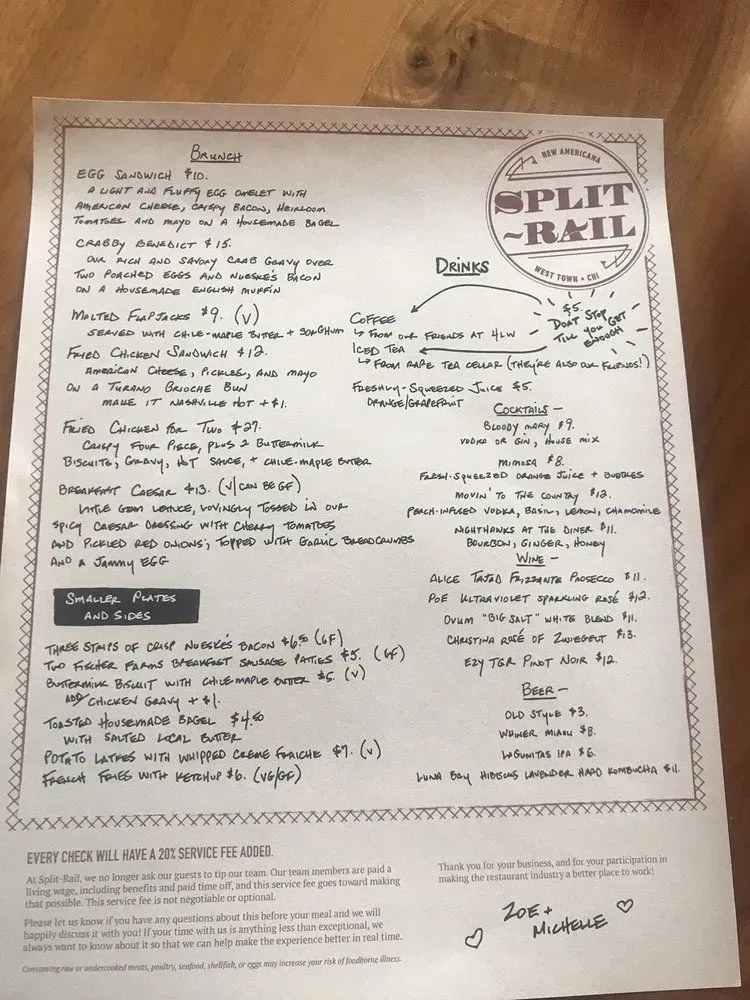 BRUNCH
EGG SANDWICH $10.
A LIGHT AND FLUFFY EGG OMELET WITH
AMERICAN CHEESE, CRISPY BACON, HEIRLOOM
TOMATOES AND MAYO ON A HOUSEMADE BAGEL
CRABBY BENEDICT $15.
OUR RICH AND SAVORY CRAB GRAVY OVER
TWO POACHED EGGS AND NUESKE'S BACON
ON A HOUSEMADE ENGLISH MUFFIN
MALTED FLAPJACKS $9. (V)
SERVED WITH CHILE-MAPLE BUTTER + SORGHUM
FRIED CHICKEN SANDWICH $12.
AMERICAN CHEESE, PICKLES, AND MAYO
ON A TURANO BRIOCHE BUN
MAKE IT NASHVILLE HOT +$1.
FRIED CHICKEN FOR TWO $27.
CRISPY FOUR PIECE, PLUS 2 BUTTERMILK
BISCUITS, GRAVY, HOT SAUCE, + CHILE-MAPLE BUTTER
BREAKFAST CAESAR $13. (V/CAN BE GF)
LITTLE GEM LETTUCE, LOVINGLY TOSSED IN OUR
SPICY CAESAR DRESSING WITH CHERRY TOMATOES
AND PICKLED RED ONIONS; TOPPED WITH GARLIC BREADCRUMBS
AND A JAMMY EGG
SMALLER PLATES
AND SIDES
THREE STRIPS OF CRISP NUESKE'S BACON $6.50 (GF)
TWO FISCHER FARMS BREAKFAST SAUSAGE PATTIES $5. (GF)
BUTTERMILK BISCUIT WITH CHILE-MAPLE BUTTER $5. (V)
ADD CHICKEN GRAVY + $1.
TOASTED HOUSEMADE BAGEL $4.50
WITH SALTED LOCAL BUTTER
POTATO LATKES WITH WHIPPED CREME FRAICHE $7. (V)
FRENCH FRIES WITH KETCHUP $6. (VG/GF)
NEW AMERICANA
SPLIT
~RAIL
WEST TOWN • CHI
DRINKS
$5.
DON'T STOP
TILL YOU GET
ENOUGH
COFFEE
FROM OUR FRIENDS AT 4LW
ICED TEA
FROM RARE TEA CELLAR (THEY'RE ALSO OUR FRIENDS!)
FRESHLY-SQUEEZED JUICE $5.
ORANGE/GRAPEFRUIT
COCKTAILS —
BLOODY MARY $9.
VODKA OR GIN, HOUSE MIX
MIMOSA $8.
FRESH-SQUEEZED ORANGE JUICE + BUBBLES
MOVIN' TO THE COUNTRY $12.
PEACH-INFUSED VODKA, BASIL, LEMON, CHAMOMILE
NIGHTHAWKS AT THE DINER $11.
BOURBON, GINGER, HONEY
WINE —
ALICE TAJAD FRIZZANTE PROSECCO $11.
POE ULTRAVIOLET SPARKLING ROSÉ $12.
OVUM "BIG SALT" WHITE BLEND $11.
CHRISTINA ROSÉ OF ZWIEGELT $13.
EZY TGR PINOT NOIR $12.
BEER —
OLD STYLE $3.
WHINER MIAOU $8.
LAGUNITAS IPA $6.
LUNA BAY HIBISCUS LAVENDER HARD KOMBUCHA $11.
EVERY CHECK WILL HAVE A 20% SERVICE FEE ADDED.
At Split-Rail, we no longer ask our guests to tip our team. Our team members are paid a
living wage, including benefits and paid time off, and this service fee goes toward making
that possible. This service fee is not negotiable or optional.
Please let us know if you have any questions about this before your meal and we will
happily discuss it with you! If your time with us is anything less than exceptional, we
always want to know about it so that we can help make the experience better in real time.
Consuming raw or undercooked meats, poultry, seafood, shellfish, or eggs may increase your risk of foodborne illness.
Thank you for your business, and for your participation in
making the restaurant industry a better place to work!
ZOE +
MICHELLE